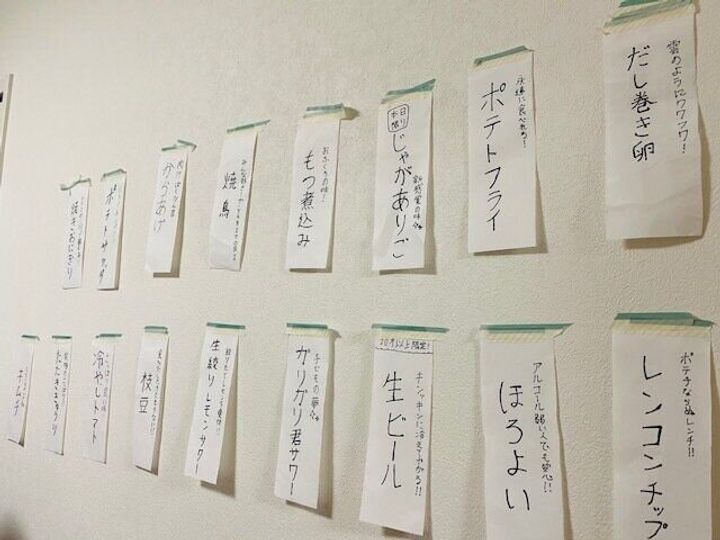 雲のようにフワフワ!
だし巻き卵
永遠に食べれる!
ポテトフライ
本日限り
じゃがありご
新感覚の味
おふくろの味!
もつ煮込み
焼鳥
からあげ
ポテトサラダ
焼きおにぎり
ポテチならぬレンチ!!
レンコンチップ
アルコール弱い人でも安心!!
ほろよい
20才以上限定!
キンッキンに冷えてやがる!!
生ビール
子どもの夢
ガリガリ君サワー
生絞りレモンサワー
枝豆
冷やしトマト
たたききゅうり
キムチ